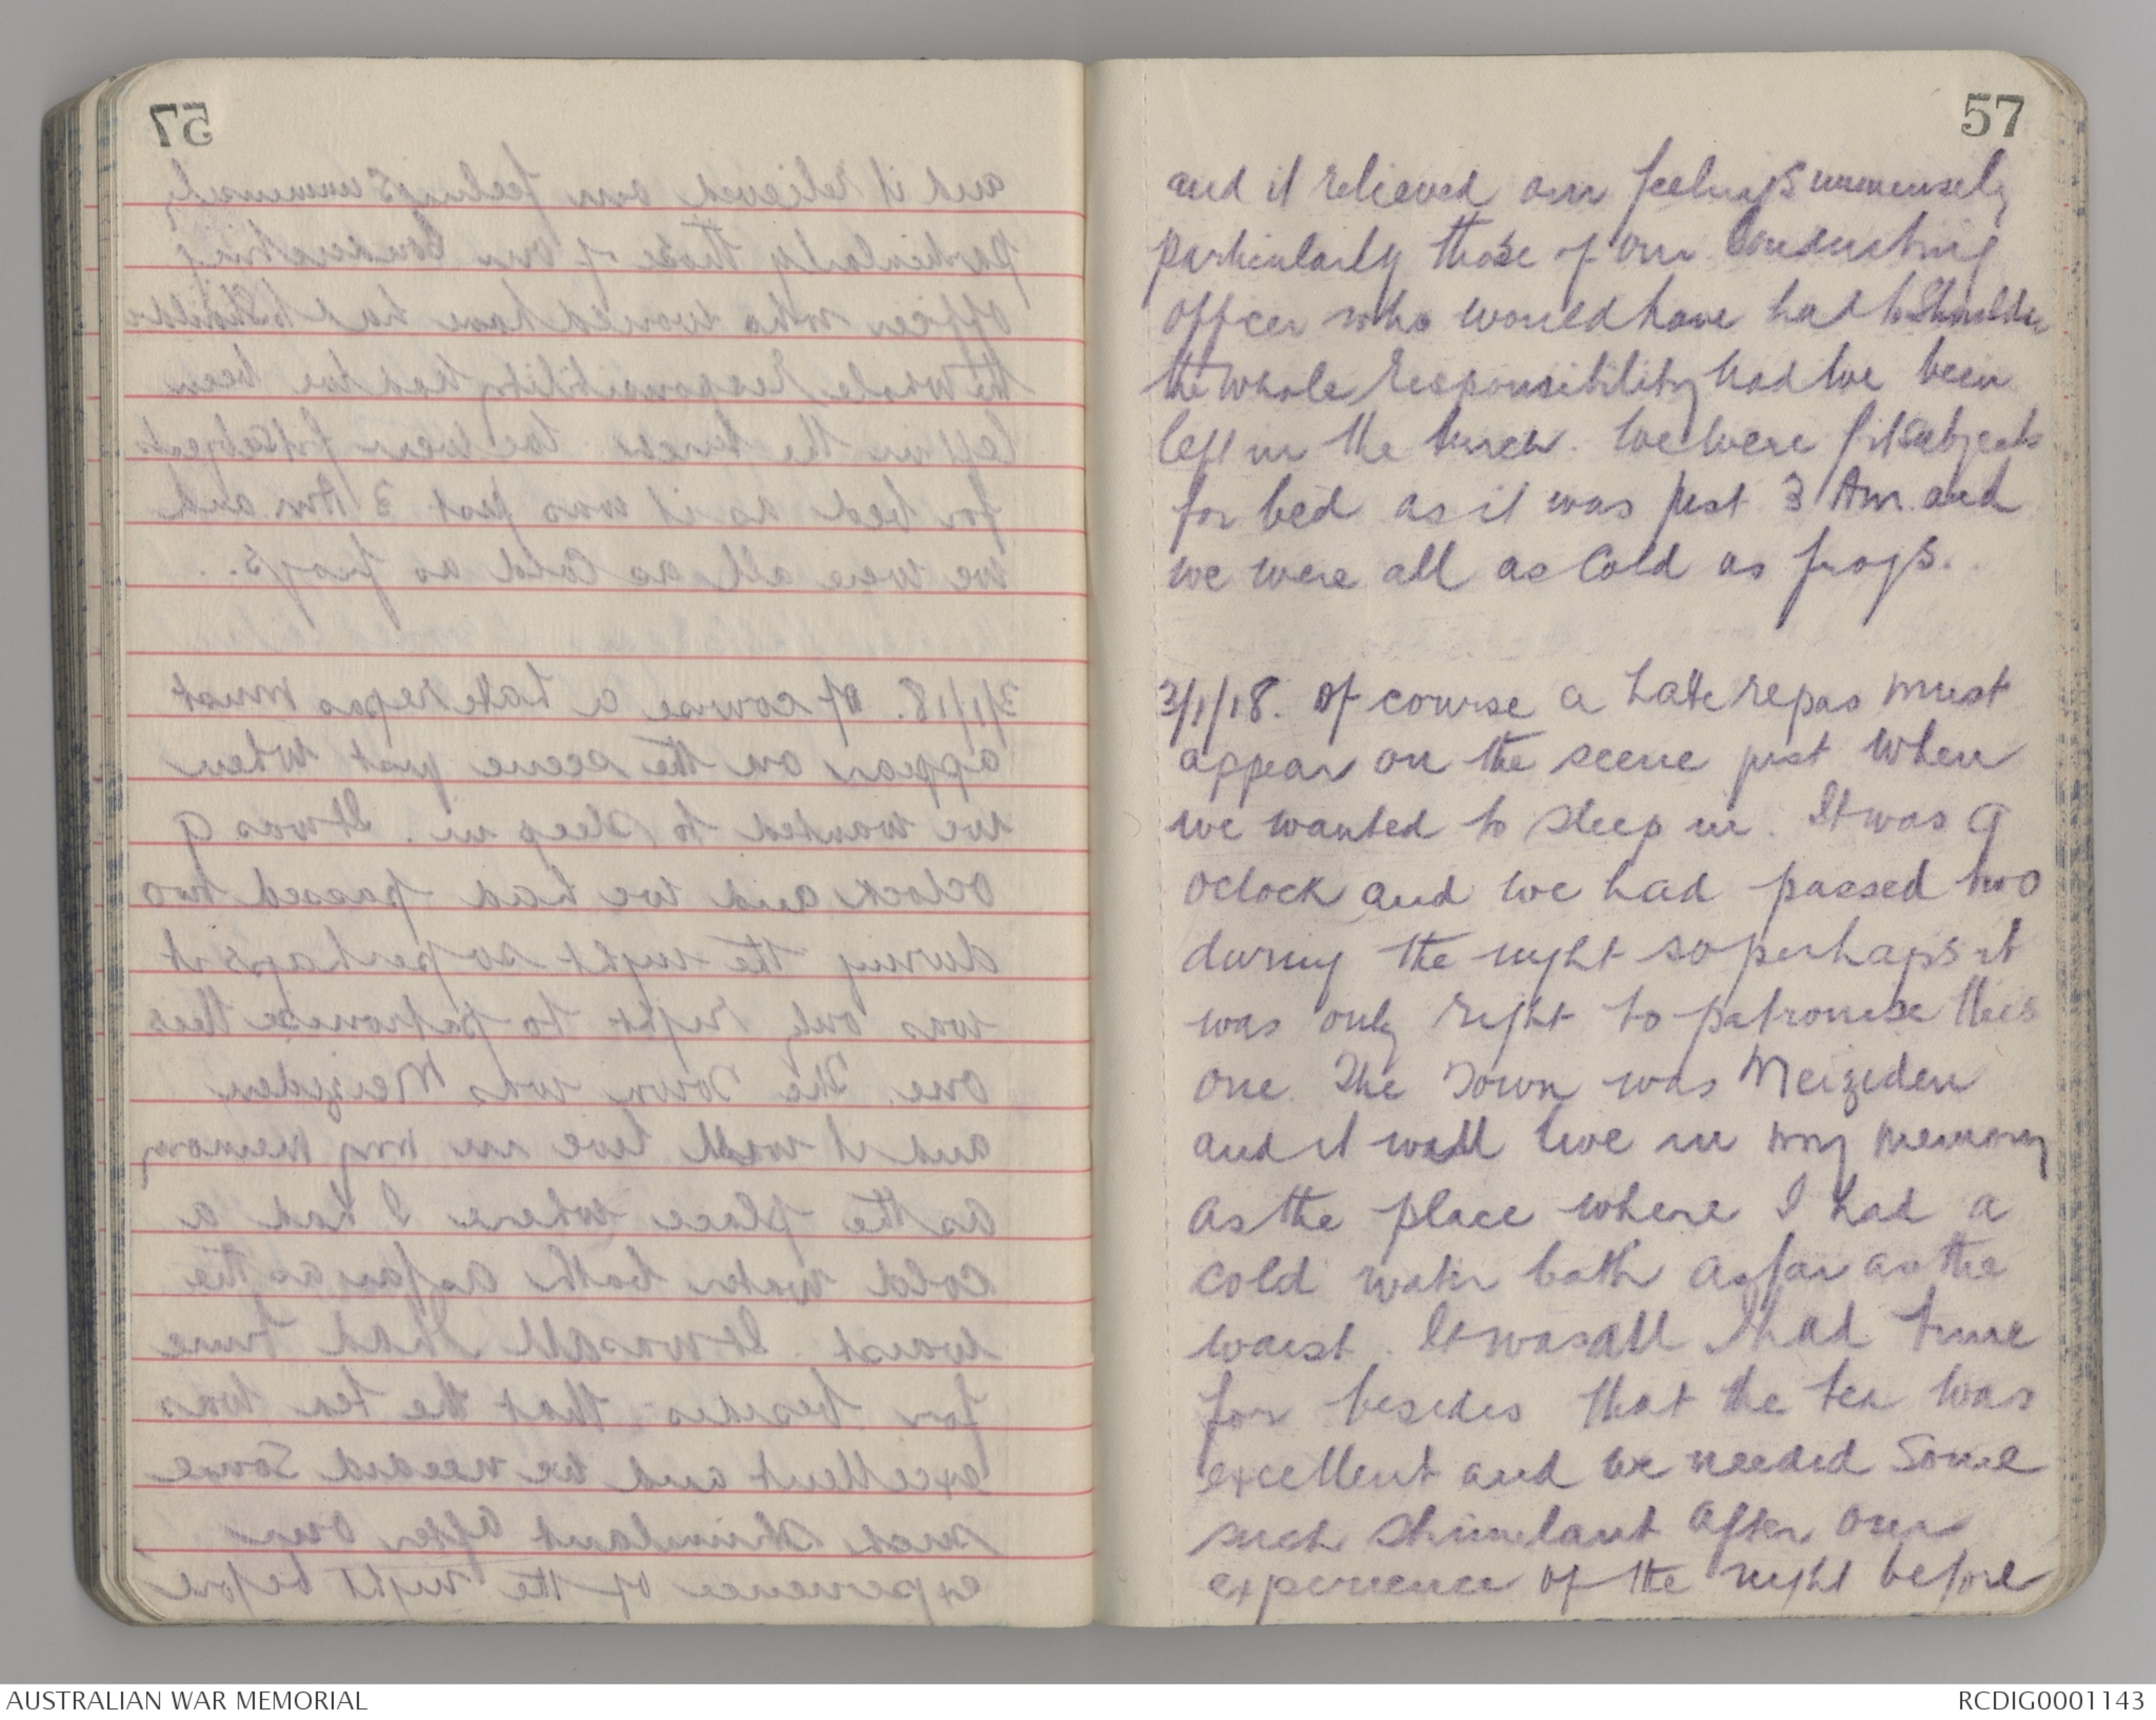 57
and it relieved our feelings immensely
particularly those of our Conducting
officer who would have had to Shoulder
the whole responsibility had we been
left in the lurch. We were fit subjects
for bed as it was past 3 Am. and
we were all as Cold as frogs..
3/1/18. Of course a halte repas must
appear on the scene just when
we wanted to sleep in. It was 9
oclock and we had passed two
during the night so perhaps it
was only right to patronise this
one. The Town was Meizeden
and it will live in my memory
as the place where I had a
cold water bath as far as the
waist. It was all I had time
for besides that the tea was
excellent and we needed Some
such stimulant after our
experience of the night before
AUSTRALIAN WAR MEMORIAL
RCDIG0001143